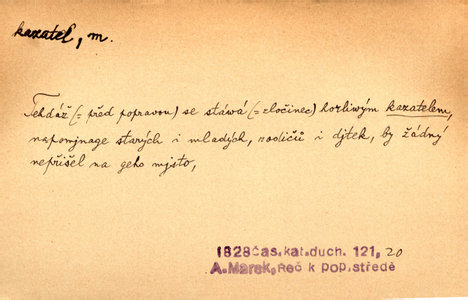 kazatel, m.
Tehdáž (= před popravou) se stává (= zločinec) horliwým kazatelem,
napomjnage starých i mladých, rodičů i djtek, by žádný
nepřišel na geho mjsto,
1828 Čas. kat. duch. 121, 20
A. Marek, Řeč k pop. středě